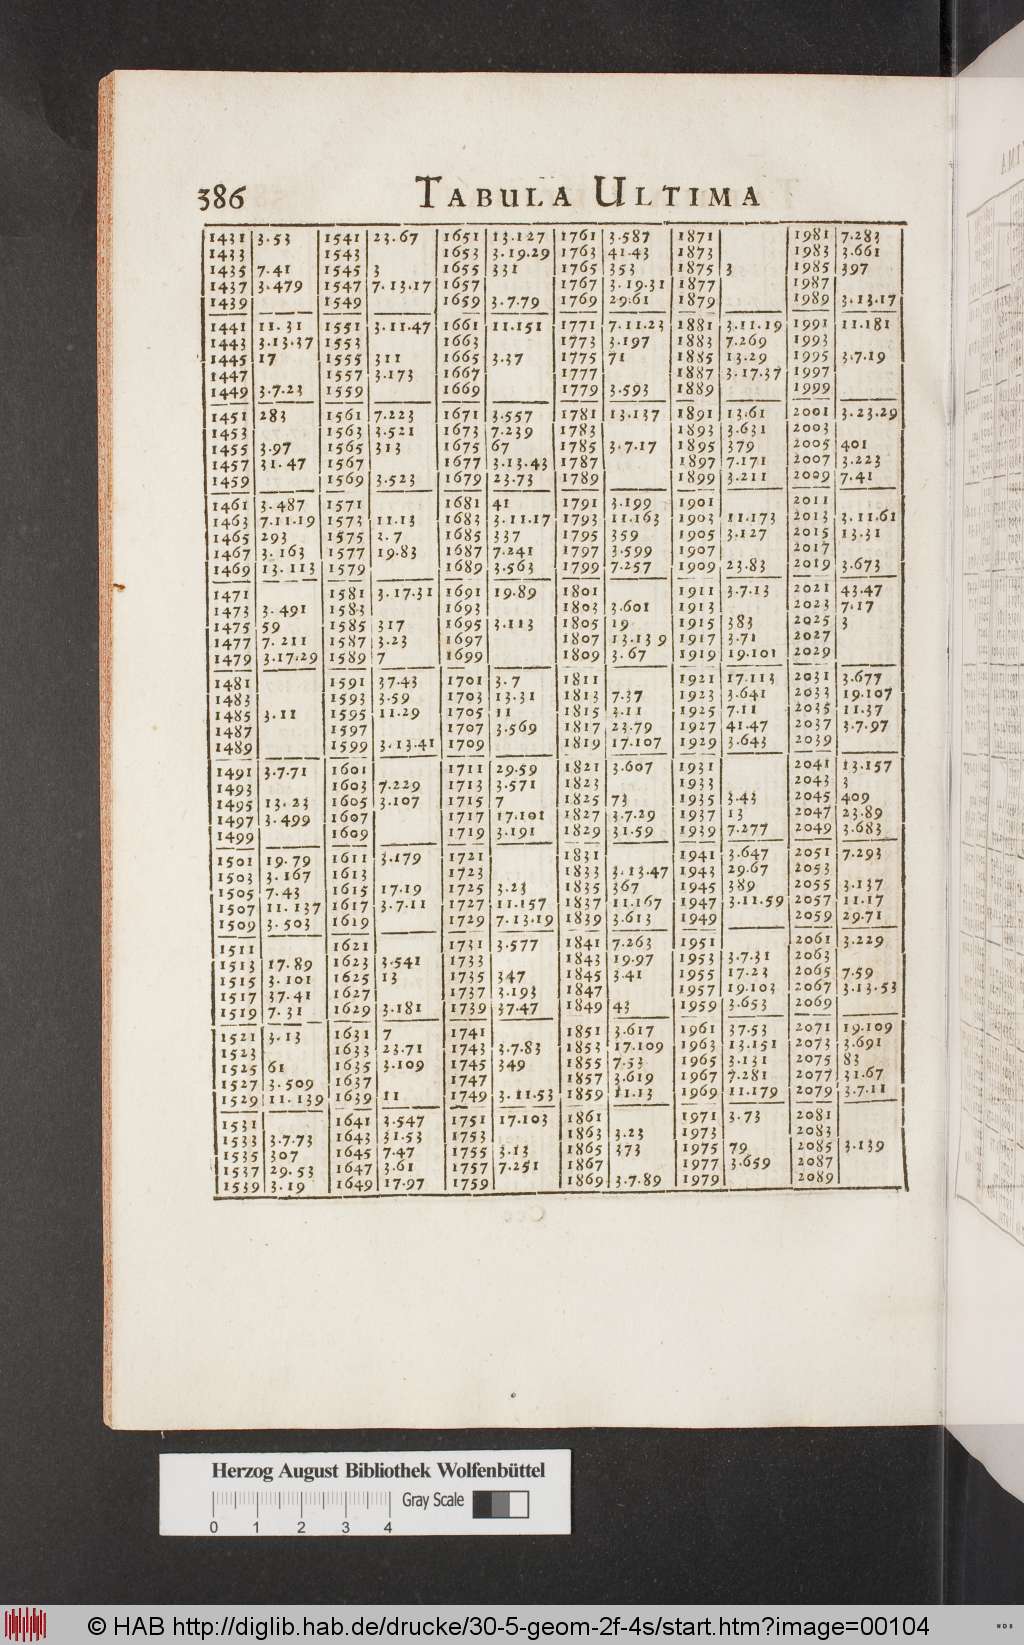 386 TABULA ULTIMA
1431 3.53 1541 23.67 1651 13.127 1761 3.587 1871 1981 7.283
1433 1543 1653 3.19.29 1763 41.43 1873 1983 3.661
1435 7.41 1545 3 1655 331 1765 353 1875 3 1985 397
1437 3.479 1547 7.13.17 1657 1767 3.19.31 1877 1987
1439 1549 1659 3.7.79 1769 29.61 1879 1989 3.13.17
1441 11.31 1551 3.11.47 1661 11.151 1771 7.11.23 1881 3.11.19 1991 11.181
1443 3.13.37 1553 1663 1773 3.197 1883 7.269 1993
1445 17 1555 311 1665 3.37 1775 71 1885 13.29 1995 3.7.19
1447 1557 3.173 1667 1777 1887 3.17.37 1997
1449 3.7.23 1559 1669 1779 3.593 1889 1999
1451 283 1561 7.223 1671 3.557 1781 13.137 1891 13.61 2001 3.23.29
1453 1563 3.521 1673 7.239 1783 1893 3.631 2003
1455 3.97 1565 313 1675 67 1785 3.7.17 1895 379 2005 401
1457 31.47 1567 1677 3.13.43 1787 1897 7.171 2007 3.223
1459 1569 3.523 1679 23.73 1789 1899 3.211 2009 7.41
1461 3.487 1571 1681 41 1791 3.199 1901 2011
1463 7.11.19 1573 11.13 1683 3.11.17 1793 11.163 1903 11.173 2013 3.11.61
1465 293 1575 3.7 1685 337 1795 359 1905 3.127 2015 13.31
1467 3.163 1577 19.83 1687 7.241 1797 3.599 1907 2017
1469 13.113 1579 1689 3.563 1799 7.257 1909 23.83 2019 3.673
1471 1581 3.17.31 1691 19.89 1801 1911 3.7.13 2021 43.47
1473 3.491 1583 1693 1803 3.601 1913 2023 7.17
1475 59 1585 317 1695 3.113 1805 19 1915 383 2025 3
1477 7.211 1587 3.23 1697 1807 13.139 1917 3.71 2027
1479 3.17.29 1589 7 1699 1809 3.67 1919 19.101 2029
1481 1591 37.43 1701 3.7 1811 1921 17.113 2031 3.677
1483 1593 3.59 1703 13.31 1813 7.37 1923 3.641 2033 19.107
1485 3.11 1595 11.29 1705 11 1815 3.11 1925 7.11 2035 11.37
1487 1597 1707 3.569 1817 23.79 1927 41.47 2037 3.7.97
1489 1599 3.13.41 1709 1819 17.107 1929 3.643 2039
1491 3.7.71 1601 1711 29.59 1821 3.607 1931 2041 13.157
1493 1603 7.229 1713 3.571 1823 1933 2043 3
1495 13.23 1605 3.107 1715 7 1825 73 1935 3.43 2045 409
1497 3.499 1607 1717 17.101 1827 3.7.29 1937 13 2047 23.89
1499 1609 1719 3.191 1829 31.59 1939 7.277 2049 3.683
1501 19.79 1611 3.179 1721 1831 1941 3.647 2051 7.293
1503 3.167 1613 1723 1833 3.13.47 1943 29.67 2053
1505 7.43 1615 17.19 1725 3.23 1835 367 1945 389 2055 3.137
1507 11.137 1617 3.7.11 1727 11.157 1837 11.167 1947 3.11.59 2057 11.17
1509 3.503 1619 1729 7.13.19 1839 3.613 1949 2059 29.71
1511 1621 1731 3.577 1841 7.263 1951 2061 3.229
1513 17.89 1623 3.541 1733 1843 19.97 1953 3.7.31 2063
1515 3.101 1625 13 1735 347 1845 3.41 1955 17.23 2065 7.59
1517 37.41 1627 1737 3.193 1847 1957 19.103 2067 3.13.53
1519 7.31 1629 3.181 1739 37.47 1849 43 1959 3.653 2069
1521 3.13 1631 7 1741 1851 3.617 1961 37.53 2071 19.109
1523 1633 23.71 1743 3.7.83 1853 17.109 1963 13.151 2073 3.691
1525 61 1635 3.109 1745 349 1855 7.53 1965 3.131 2075 83
1527 3.509 1637 1747 1857 3.619 1967 7.281 2077 31.67
1529 11.139 1639 11 1749 3.11.53 1859 11.13 1969 11.179 2079 3.7.11
1531 1641 3.547 1751 17.103 1861 1971 3.73 2081
1533 3.7.73 1643 31.53 1753 1863 3.23 1973 2083
1535 307 1645 7.47 1755 3.13 1865 373 1975 79 2085 3.139
1537 29.53 1647 3.61 1757 7.251 1867 1977 3.659 2087
1539 3.19 1649 17.97 1759 1869 3.7.89 1979 2089
Herzog August Bibliothek Wolfenbüttel
Gray Scale
0 1 2 3 4
© HAB http://diglib.hab.de/drucke/30-5-geom-2f-4s/start.htm?image=00104